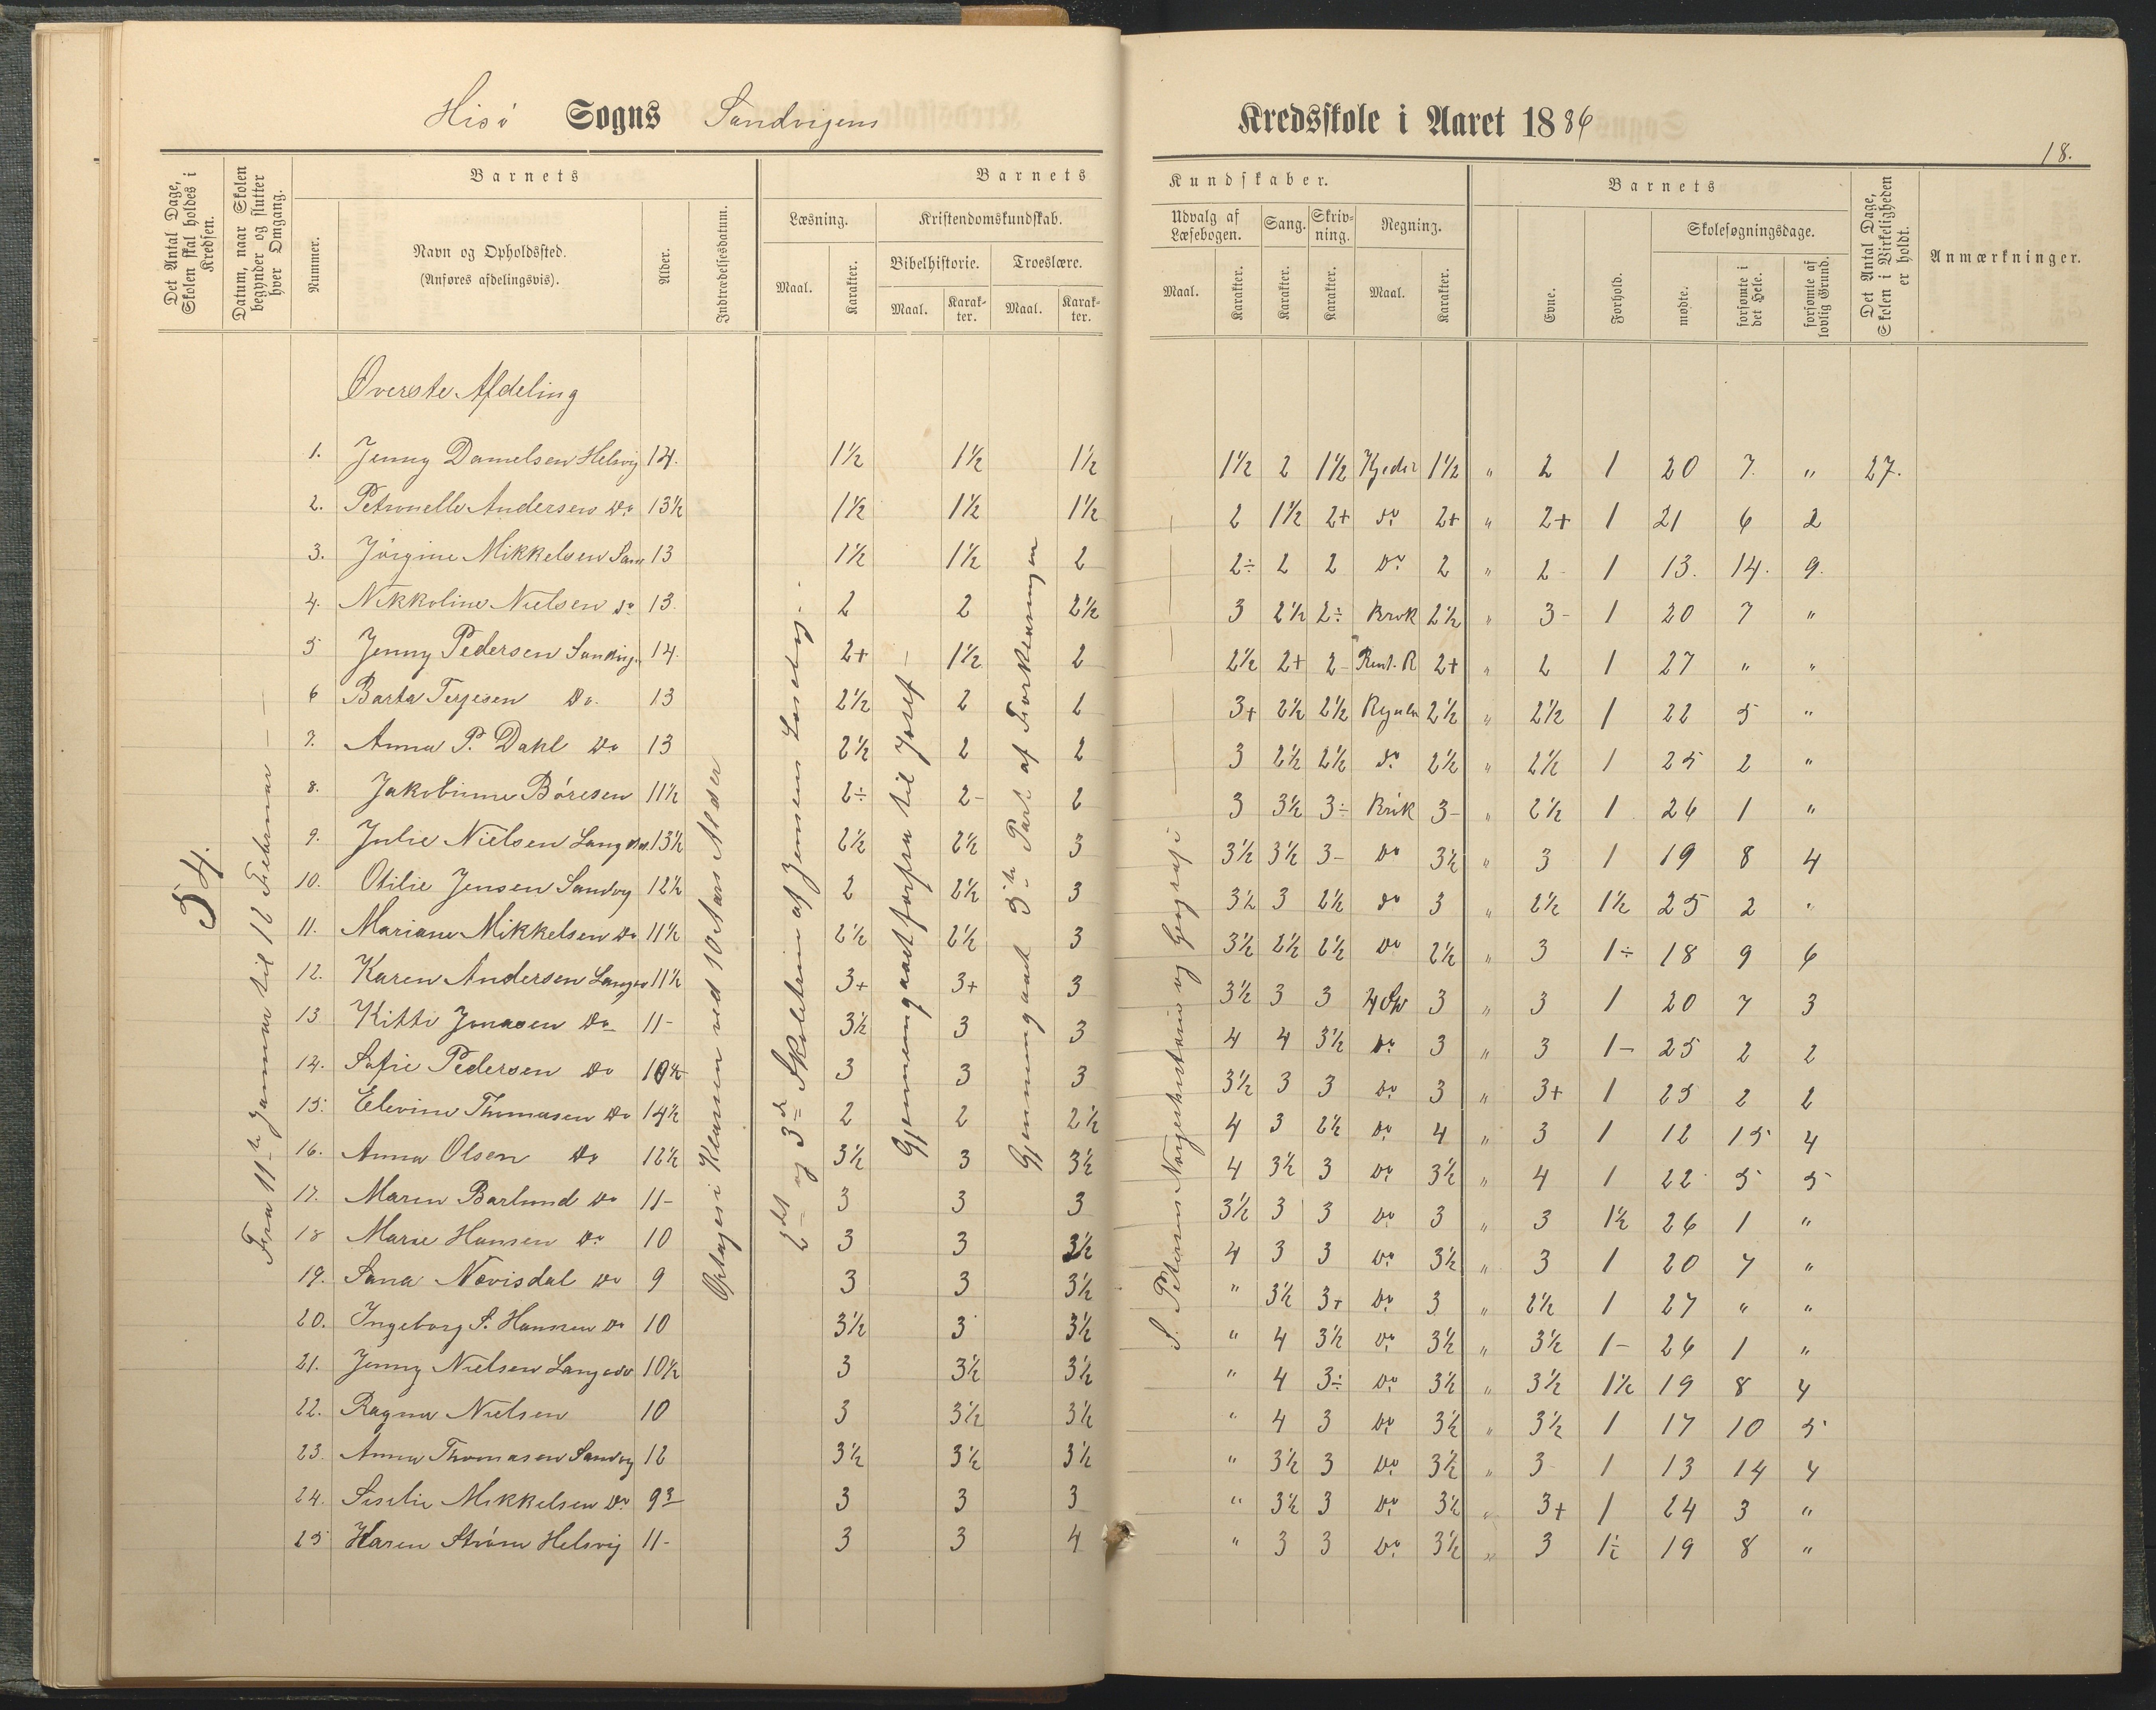 Hisø Sogns Sandvigens Kredsskole i Aaret 1886
18.
Det Antal Dage, Skolen skal holdes i Kredsen.
Datum, naar Skolen begynder og slutter hver Omgang.
Barnets
Nummer.
Navn og Opholdssted.
(Anføres afdelingsvis).
Alder.
Indtrædelsesdatum.
Barnets Kundskaber.
Læsning.
Maal. Karakter.
Kristendomskundskab.
Bibelhistorie. Troeslære.
Maal. Karakter. Maal. Karakter.
Udvalg af Læsebogen.
Maal. Karakter.
Sang. Karakter.
Skrivning. Karakter.
Regning.
Maal. Karakter.
Barnets
Evne. Forhold.
Skolesøgningsdage.
mødte. forsømte i det Hele. forsømte af lovlig Grund.
Det Antal Dage, Skolen i Virkeligheden er holdt.
Anmærkninger.
54.
Fra 11te Januar til 12 Februar —
Optages i Klassen ved 10 Aars Alder
2det og 3de Skoletrin af Jensens Læsebog.
Gjennemgaaet forfra til Josef —
Gjennemgaaet 3die Part af Forklaringen
S. Petersens Norgeshistorie og Geografi
Øverste Afdeling
1. Jenny Danielsen Helsvig 14. 1½ 1½ 1½ 1½ 2 1½ 1½ " 2 1 20 7. " 27.
2. Petronelle Andersen Do 13½ 1½ 1½ 1½ 2 1½ 2+ do 2+ " 2+ 1 21 6 2
3. Jörgine Mikkelsen San 13 1½ 1½ 2 2÷ 2 2 Do 2 " 2- 1 13. 14. 9.
4. Nikkoline Nielsen do 13. 2 2 2½ 3 2½ 2÷ Brok 2½ " 3- 1 20 7 "
5 Jenny Pedersen Sandvig. 14. 2+ 1½ 2 2½ 2+ 2- Rent. R 2+ " 2 1 27 " "
6 Barta Terjesen Do. 13 2½ 2 2 3+ 2½ 2½ 2½ " 2½ 1 22 5 "
7. Anna P. Dahl Do 13 2½ 2 2 3 2½ 2½ do 2½ " 2½ 1 25 2 "
8. Jakobinne Böresen 11½ 2÷ 2- 2 3 3½ 3÷ Brok 3- " 2½ 1 26 1 "
9. Julie Nielsen Lang 13½ 2½ 2½ 3 3½ 3½ 3- Do 3½ " 3 1 19 8 4
10. Otilie Jensen Sandvg 12½ 2 2½ 3 3½ 3 2½ do 3 " 2½ 1½ 25 2 "
11. Mariane Mikkelsen Do 11½ 2½ 2½ 3 3½ 2½ 2½ Do 2½ " 3 1÷ 18 9 6
12. Karen Andersen 11½ 3+ 3+ 3 3½ 3 3 3 " 3 1 20 7 3
13 Kitti Jonasen Do 11- 3½ 3 3 4 4 3½ Do 3 " 3 1- 25 2 2
14. Sofie Pedersen Do 10½ 3 3 3 3½ 3 3 Do 3 " 3+ 1 25 2 2
15. Elevine Thomasen Do 14½ 2 2 2½ 4 3 2½ Do 4 " 3 1 12 15 4
16. Anna Olsen Do 12½ 3½ 3 3½ 4 3½ 3 Do 3½ " 4 1 22 5 5
17. Maren Barlund Do 11- 3 3 3 3½ 3 3 Do 3 " 3 1½ 26 1 "
18 Marie Hansen Do 10 3 3 3½ 4 3 3 Do 3½ " 3 1 20 7 "
19. Sana Nævisdal Do 9 3 3 3½ " 3½ 3+ Do 3 " 2½ 1 27 " "
20. Ingeborg S. Hansen Do 10 3½ 3 3½ " 4 3½ Do 3½ " 3½ 1- 26 1 "
21. Jenny Nielsen 10½ 3 3½ 3½ " 4 3÷ Do 3½ " 3½ 1½ 19 8 4
22. Ragna Nielsen 10 3 3½ 3½ " 4 3 Do 3½ " 3½ 1 17 10 5
23. Anna Thomasen Sandvg 12 3½ 3½ 3½ " 3½ 3 Do 3½ " 3 1 13 14 4
24. Siselie Mikkelsen Do 3 3 3 " 3½ 3 Do 3½ " 3+ 1 24 3 "
25 Karen Ström Helsvig 11- 3 3 4 " 3 3 Do 3½ " 3 1÷ 19 8 "